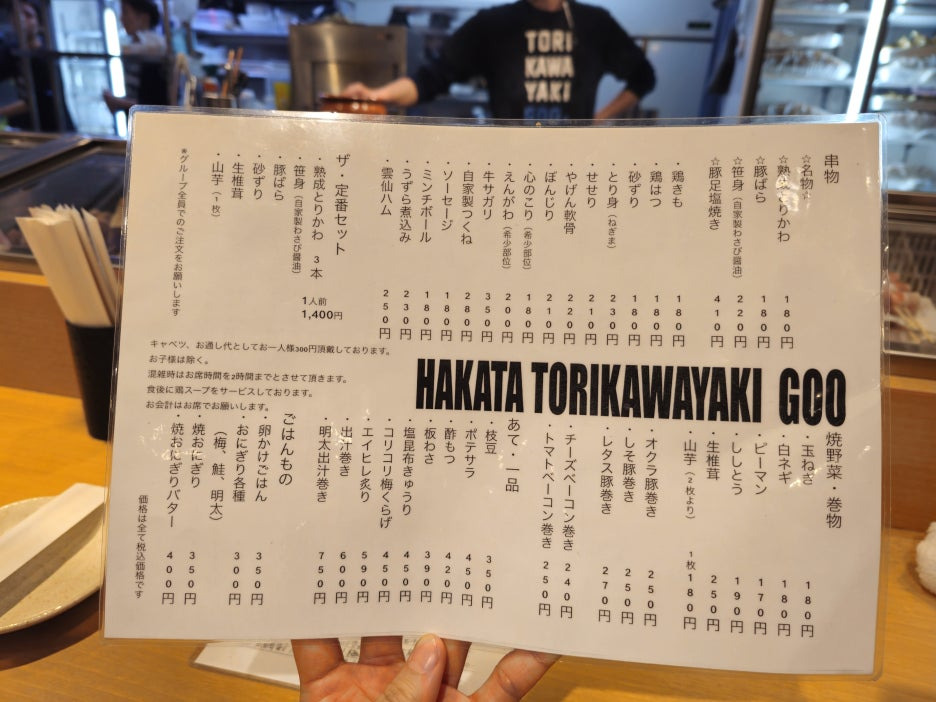 TORI
KAWA
YAKI
串物
☆名物☆
☆熟成とりかわ 180円
☆豚ばら 180円
☆笹身(自家製わさび醤油) 220円
☆豚足塩焼き 410円
・鶏きも 180円
・鶏はつ 180円
・砂ずり 180円
・とり身(ねぎま) 230円
・せせり 210円
・やげん軟骨 220円
・ぼんじり 210円
・心のこり(希少部位) 180円
・えんがわ(希少部位) 200円
・牛サガリ 350円
・自家製つくね 280円
・ソーセージ 180円
・ミンチボール 180円
・うずら煮込み 230円
・雲仙ハム 250円
ザ・定番セット
・熟成とりかわ 3本
・笹身(自家製わさび醤油)
・豚ばら
・砂ずり
・生椎茸
・山芋(1枚)
1人前
1,400円
※グループ全員でのご注文をお願いします
キャベツ、お通し代としてお一人様300円頂戴しております。
お子様は除く。
混雑時はお席時間を2時間までとさせて頂きます。
食後に鶏スープをサービスしております。
お会計はお席でお願いします。
HAKATA TORIKAWAYAKI GOO
焼野菜・巻物
・玉ねぎ 180円
・白ネギ 180円
・ピーマン 170円
・ししとう 190円
・生椎茸 250円
・山芋(2枚より) 1枚180円
・オクラ豚巻き 250円
・しそ豚巻き 250円
・レタス豚巻き 270円
・チーズベーコン巻き 240円
・トマトベーコン巻き 250円
あて・一品
・枝豆 350円
・ポテサラ 450円
・酢もつ 420円
・板わさ 390円
・塩昆布きゅうり 450円
・コリコリ梅くらげ 450円
・エイヒレ炙り 590円
・出汁巻き 600円
・明太出汁巻き 750円
ごはんもの
・卵かけごはん 350円
・おにぎり各種 300円
(梅、鮭、明太)
・焼おにぎり 350円
・焼おにぎりバター 400円
価格は全て税込価格です